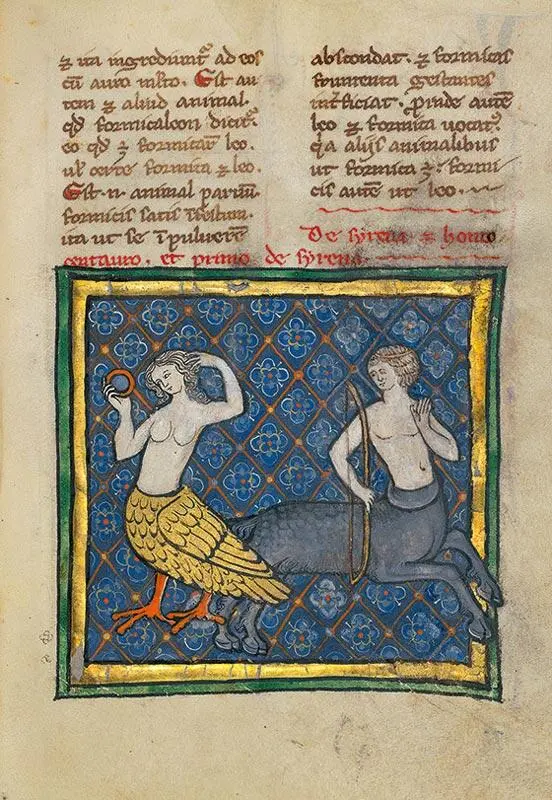 ⁊ ita ingrediunt᷑ ad eos
cū auro mixto. Est au
tem ⁊ aliud animal.
qd formicaleon dicit᷑.
eo qd ⁊ formicarū leo.
ul' certe formica ⁊ leo.
Est .n. animal paruū.
formicis satis
ita ut se ī puluere
abscondat. ⁊ formicas
frumenta gestantes
int̄ficiat. proinde autē
leo ⁊ formica uocat᷑.
q̇a alijs animalibus
ut formica ē. formi
cis autē ut leo.
De syrena ⁊ homo
centauro. et primo de syrena.